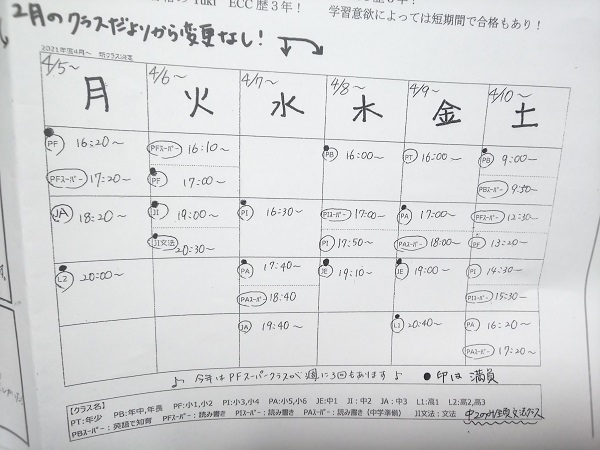 Yuki ECC歴3年! 学習意欲によっては短期間で合格もあり!
2月のクラスだよりから変更なし!
2021年度4月~
4/5~ 4/6~ 4/7~ 4/8~ 4/9~ 4/10~
月 火 水 木 金 土
PF 16:20~ PFスーパー 16:10~ PB 16:00~ PT 16:00~ PB 9:00~
PFスーパー 17:20~ PF 17:00~ PBスーパー 9:50~
JA 18:20~ JI 19:00~ PI 16:30~ PIスーパー 17:00~ PA 17:00~ PFスーパー 12:30~
JI文法 20:30~ PI 17:50~ PAスーパー 18:00~ PF 13:20~
L2 20:00~ PA 17:40~ JE 19:10~ JE 19:00~ PI 14:30~
PAスーパー 18:40 PIスーパー 15:30~
JA 19:40~ L1 20:40~ PA 16:20~
PAスーパー 17:20~
♪ 今年はPFスーパークラスが週に3回もあります♪ ●印は満員
【クラス名】
PT:年少 PB:年中,年長 PF:小1,小2 PI:小3,小4 PA:小5,小6 JE:中1 JI:中2 JA:中3 L1:高1 L2:高2,高3
PBスーパー:英語で知育 PFスーパー:読み書き PIスーパー:読み書き PAスーパー:読み書き(中学準備) JI文法:文法